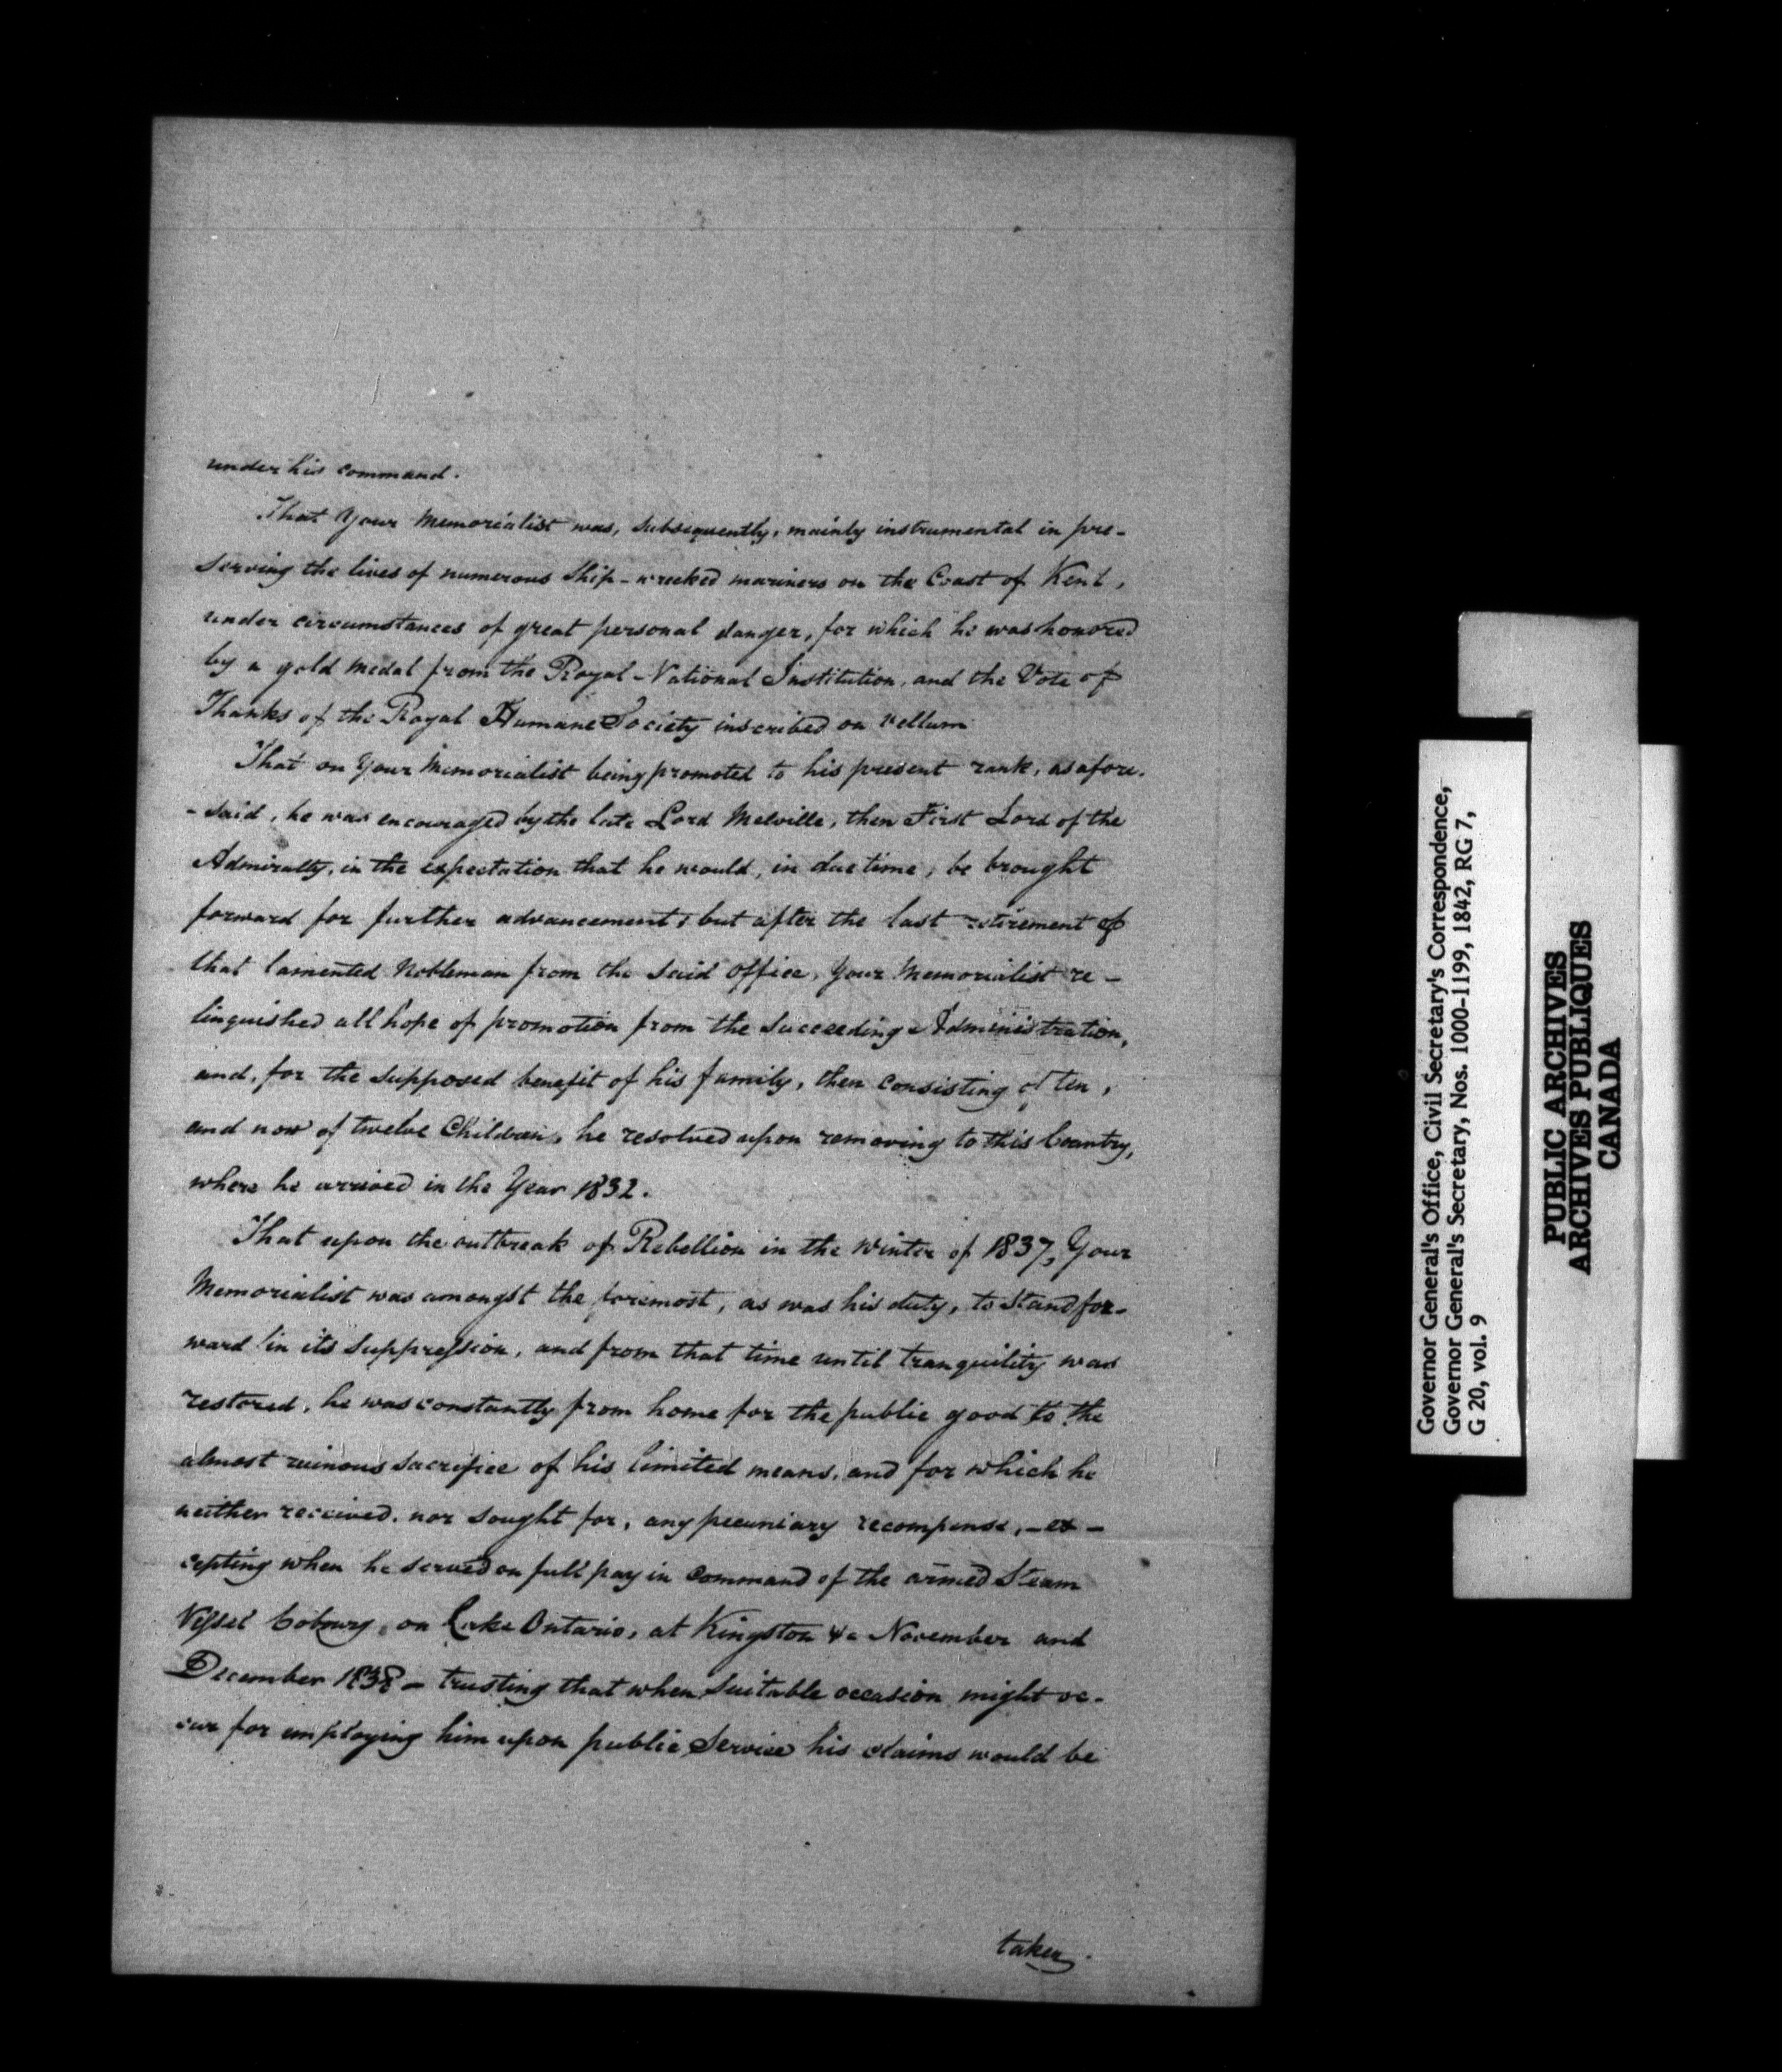 under his command.
That Your Memorialist was, subsequently, mainly instrumental in pre-
serving the lives of numerous Ship-wrecked mariners on the Coast of Kent,
under circumstances of great personal danger, for which he was honored
by a gold medal from the Royal-National Institution, and the Vote of
Thanks of the Royal Humane Society inscribed on vellum
That on Your Memorialist being promoted to his present rank, as afore-
-said, he was encouraged by the late Lord Melville, then First Lord of the
Admiralty, in the expectation that he would, in due time, be brought
forward for further advancement; but after the last retirement of
that lamented Nobleman from the said office, Your Memorialist re-
linquished all hope of promotion from the succeeding Administration,
and, for the supposed benefit of his family, then consisting of ten,
and now of twelve Children, he resolved upon removing to this Country,
where he arrived in the Year 1832.
That upon the outbreak of Rebellion in the Winter of 1837, Your
Memorialist was amongst the foremost, as was his duty, to stand for-
ward in its suppression, and from that time until tranquility was
restored, he was constantly from home for the public good to the
almost ruinous sacrifice of his limited means, and for which he
neither received, nor sought for, any pecuniary recompense, - ex-
cepting when he served on full pay in command of the armed Steam
Vessel Cobourg, on Lake Ontario, at Kingston &c November and
December 1838 - trusting that when suitable occasion might oc-
cur for employing him upon public Service his claims would be
taken
Governor General's Office, Civil Secretary's Correspondence,
Governor General's Secretary, Nos. 1000-1199, 1842, RG 7,
G 20, vol. 9
PUBLIC ARCHIVES
ARCHIVES PUBLIQUES
CANADA